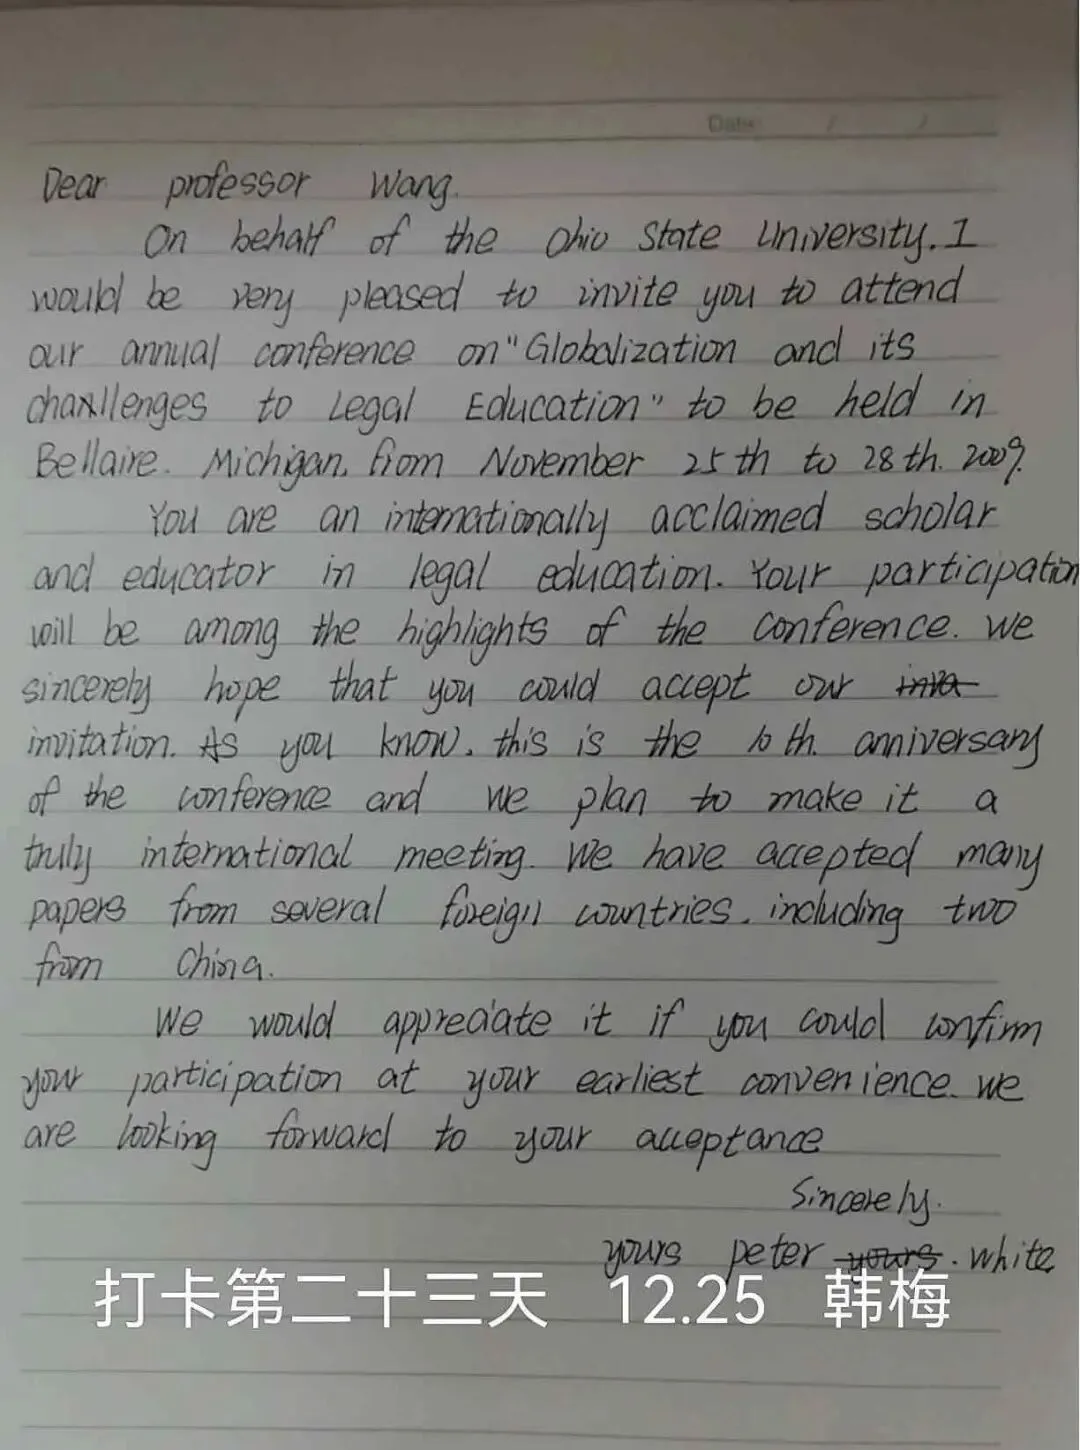 Date / /
Dear professor Wang.
On behalf of the Ohio State University. I
would be very pleased to invite you to attend
our annual conference on "Globalization and its
challenges to Legal Education" to be held in
Bellaire. Michigan. from November 25th to 28th. 2009.
You are an internationally acclaimed scholar
and educator in legal education. Your participation
will be among the highlights of the conference. We
sincerely hope that you could accept our inva
invitation. As you know. this is the 10th. anniversary
of the conference and we plan to make it a
truly international meeting. We have accepted many
papers from several foreign countries. including two
from China.
We would appreciate it if you could confirm
your participation at your earliest convenience. We
are looking forward to your acceptance
Sincerely.
yours peter yours. white
打卡第二十三天 12.25 韩梅